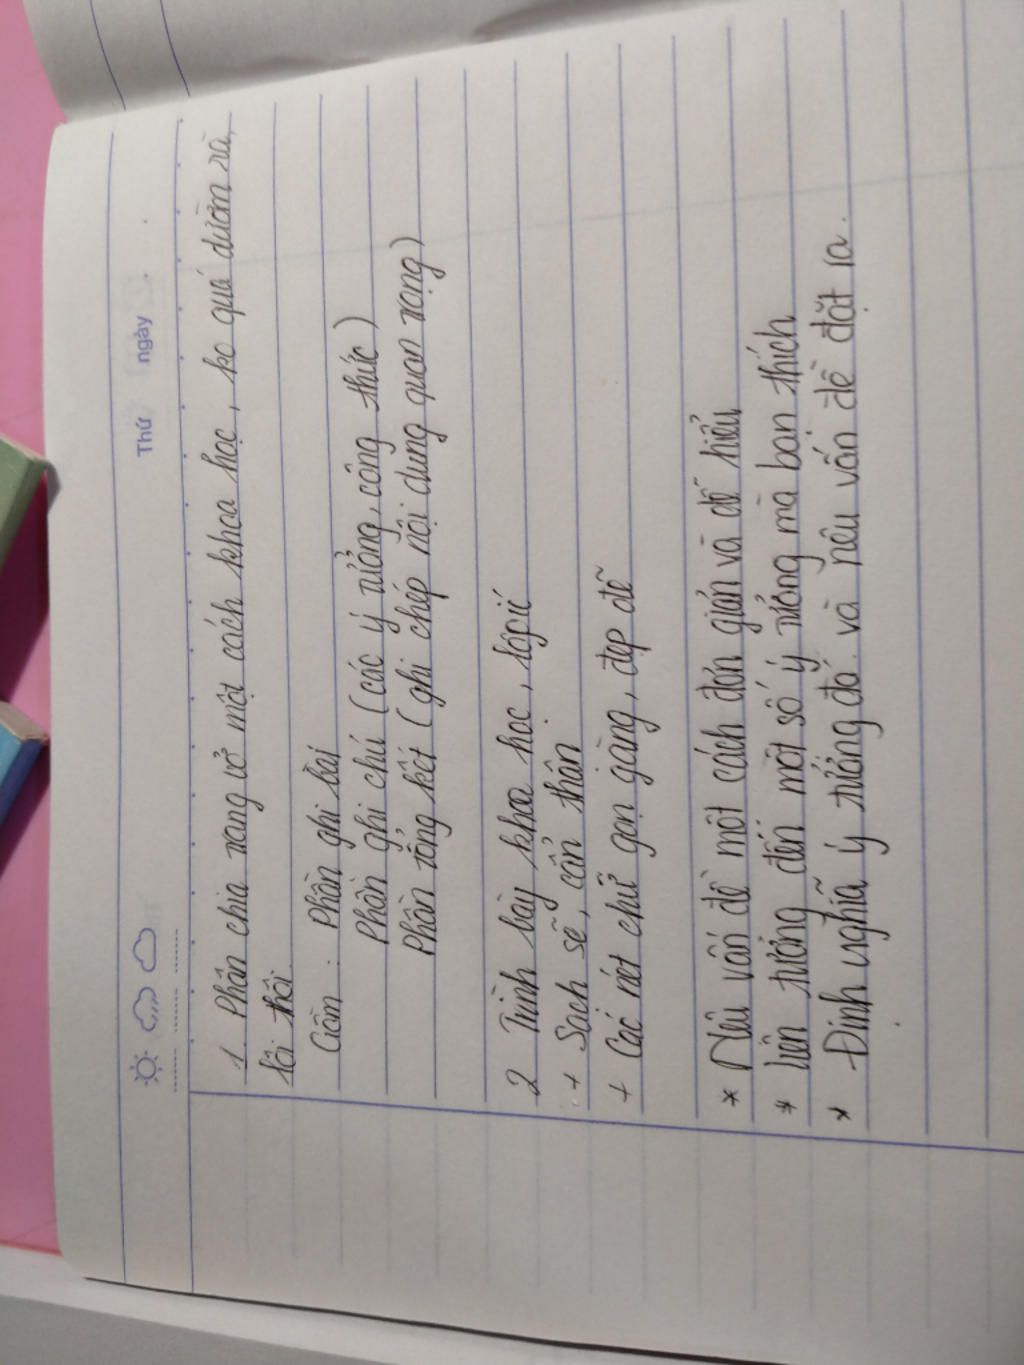 Thứ ngày
1. Phân chia trang vở một cách khoa học, ko quá dườm rà,
lôi thôi.
Gồm: Phần ghi bài
Phần ghi chú (các ý tưởng, công thức)
Phần tổng kết (ghi chép nội dung quan trọng)
2 Trình bày khoa học, lôgic
+ Sạch sẽ, cẩn thân
+ Các nét chữ gọn gàng, đẹp đẽ
* Nêu vấn đề một cách đơn giản và dễ hiểu
* Liên tưởng đến một số ý tưởng mà bạn thích
* Định nghĩa ý tưởng đó. và nêu vấn đề đặt ra.